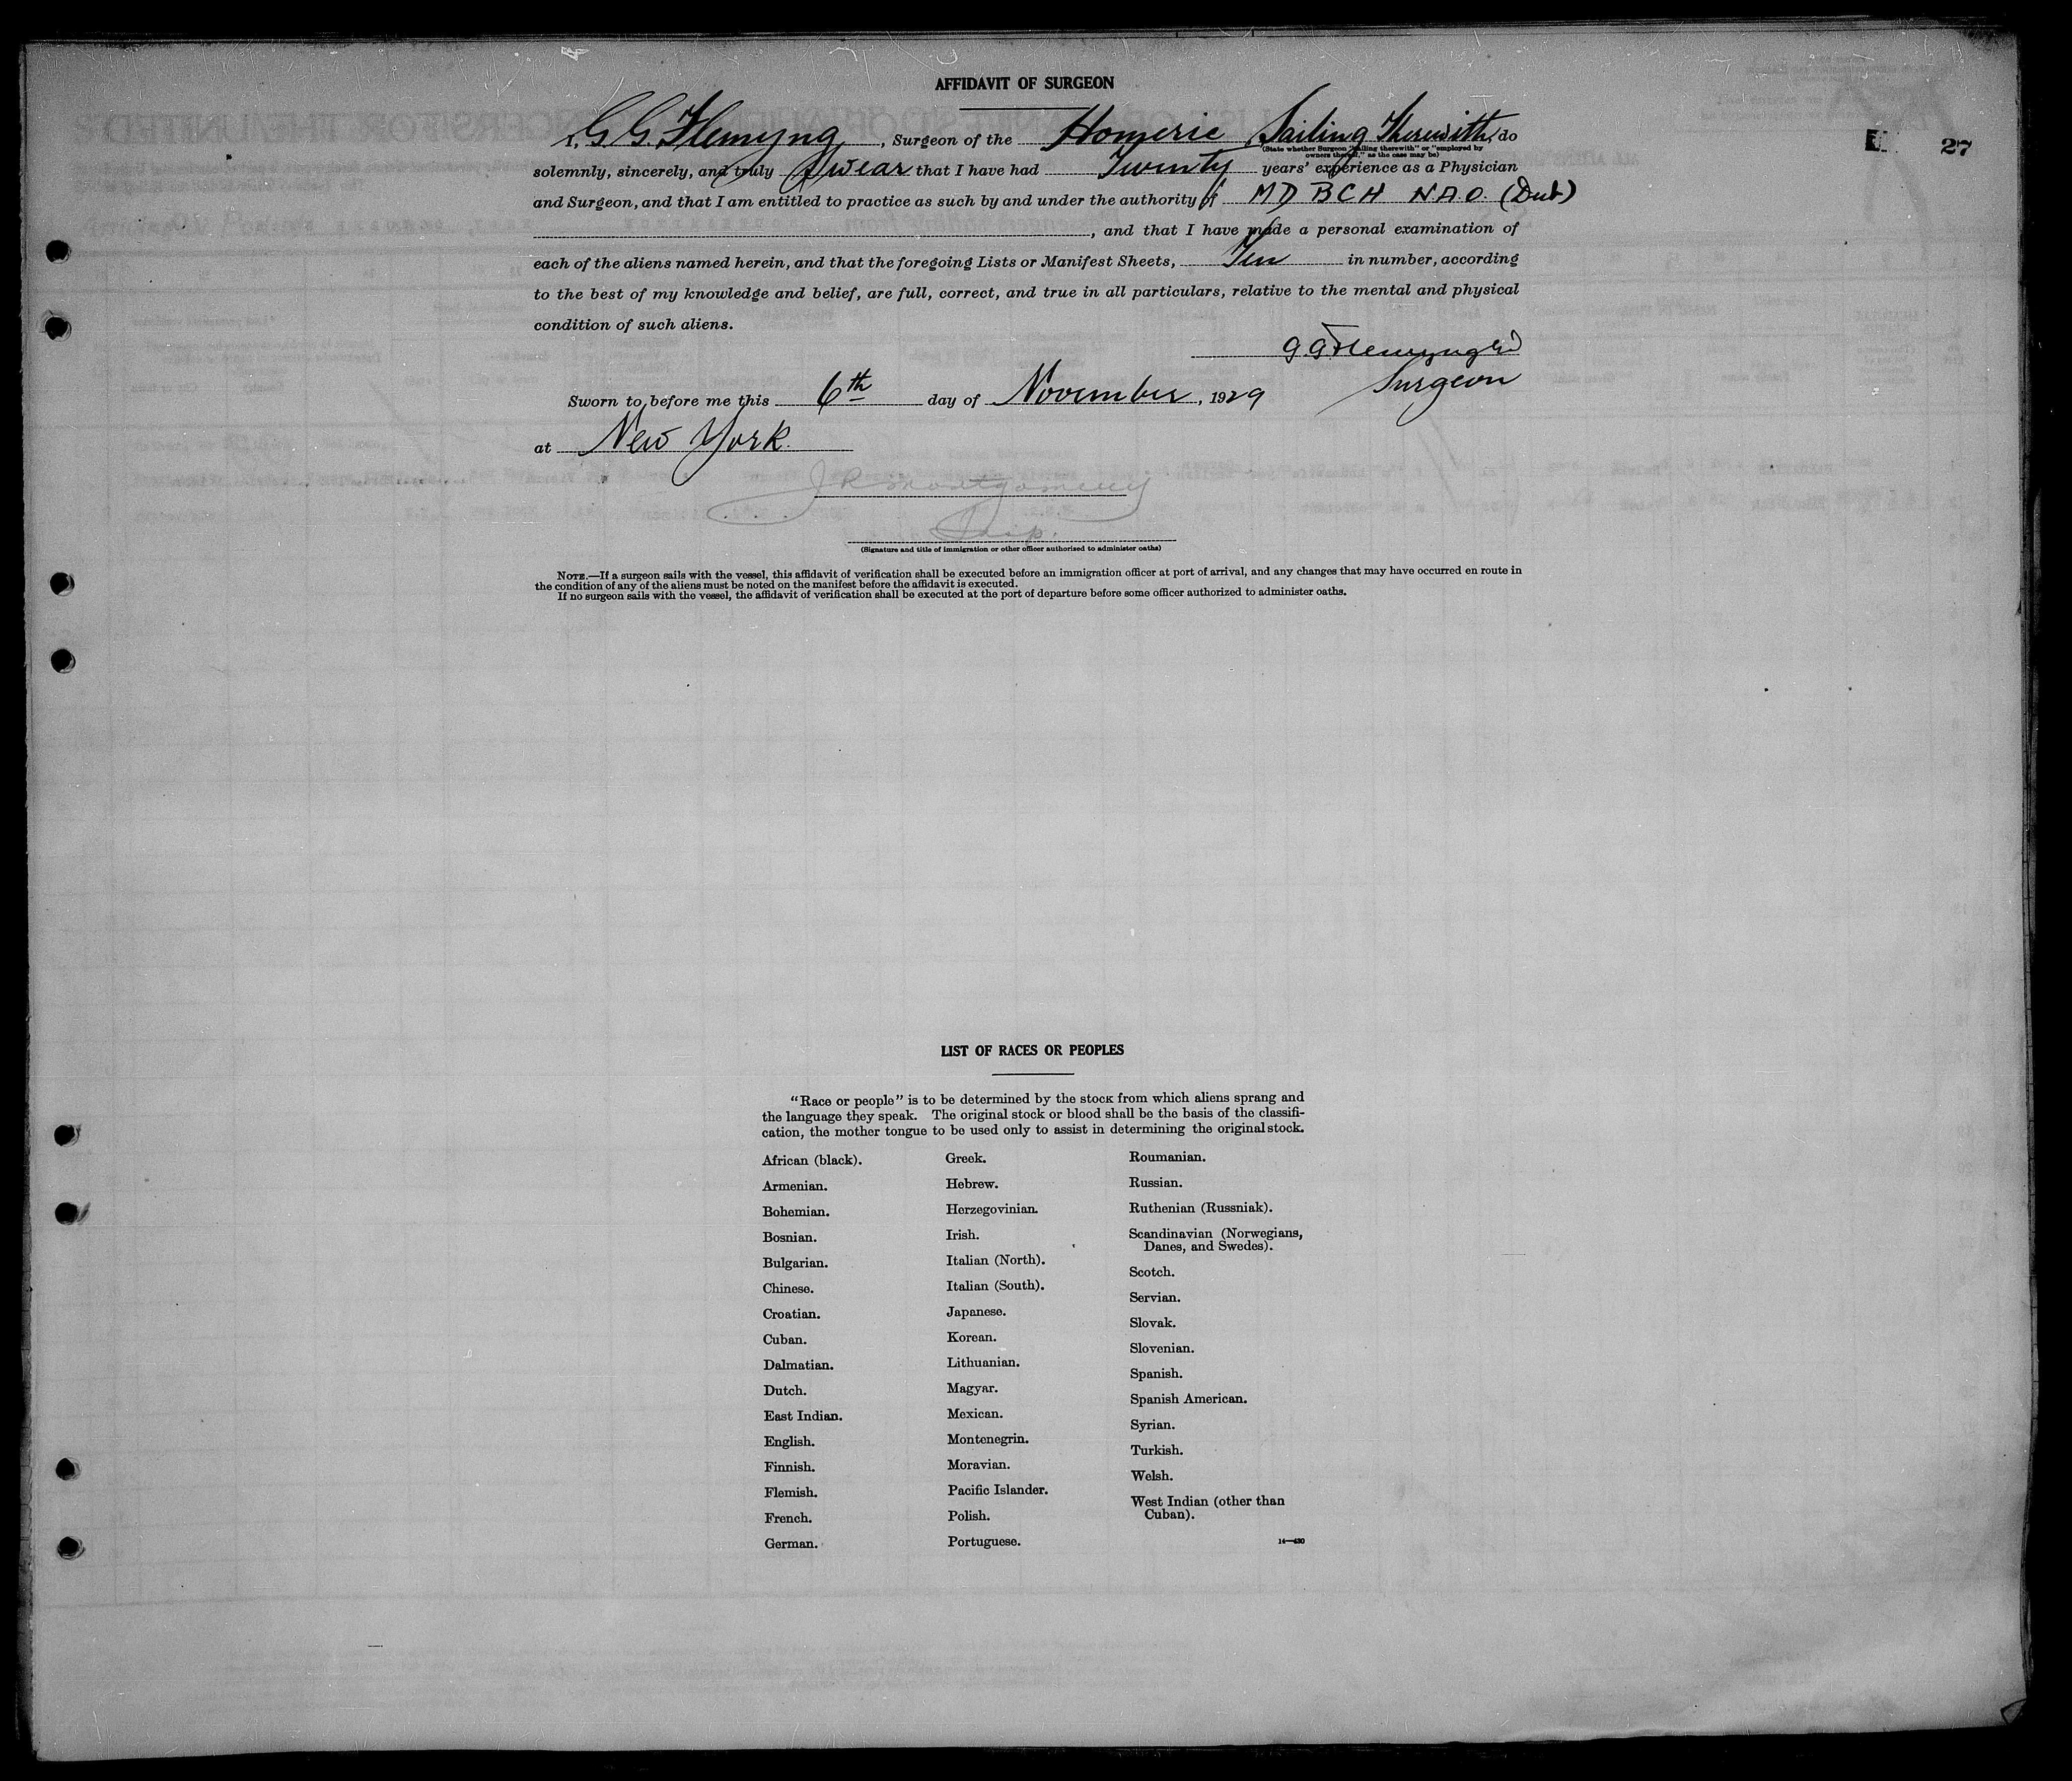 AFFIDAVIT OF SURGEON
I, G G. Flemyng, Surgeon of the Homeric Sailing Therewith, do
(State whether Surgeon "sailing therewith" or "employed by
owners thereof," as the case may be)
27
solemnly, sincerely, and truly Swear that I have had Twenty years' experience as a Physician
and Surgeon, and that I am entitled to practice as such by and under the authority of MD BCH (Dub)
, and that I have made a personal examination of
each of the aliens named herein, and that the foregoing Lists or Manifest Sheets, Ten in number, according
to the best of my knowledge and belief, are full, correct, and true in all particulars, relative to the mental and physical
condition of such aliens.
G G Flemyng
Surgeon
Sworn to before me this 6th day of November, 1929
at New York.
J R Montgomery
Insp.
(Signature and title of immigration or other officer authorized to administer oaths)
NOTE.—If a surgeon sails with the vessel, this affidavit of verification shall be executed before an immigration officer at port of arrival, and any changes that may have occurred en route in
the condition of any of the aliens must be noted on the manifest before the affidavit is executed.
If no surgeon sails with the vessel, the affidavit of verification shall be executed at the port of departure before some officer authorized to administer oaths.
LIST OF RACES OR PEOPLES
"Race or people" is to be determined by the stock from which aliens sprang and
the language they speak. The original stock or blood shall be the basis of the classifi-
cation, the mother tongue to be used only to assist in determining the original stock.
African (black).
Armenian.
Bohemian.
Bosnian.
Bulgarian.
Chinese.
Croatian.
Cuban.
Dalmatian.
Dutch.
East Indian.
English.
Finnish.
Flemish.
French.
German.
Greek.
Hebrew.
Herzegovinian.
Irish.
Italian (North).
Italian (South).
Japanese.
Korean.
Lithuanian.
Magyar.
Mexican.
Montenegrin.
Moravian.
Pacific Islander.
Polish.
Portuguese.
Roumanian.
Russian.
Ruthenian (Russniak).
Scandinavian (Norwegians,
Danes, and Swedes).
Scotch.
Servian.
Slovak.
Slovenian.
Spanish.
Spanish American.
Syrian.
Turkish.
Welsh.
West Indian (other than
Cuban).
14—430